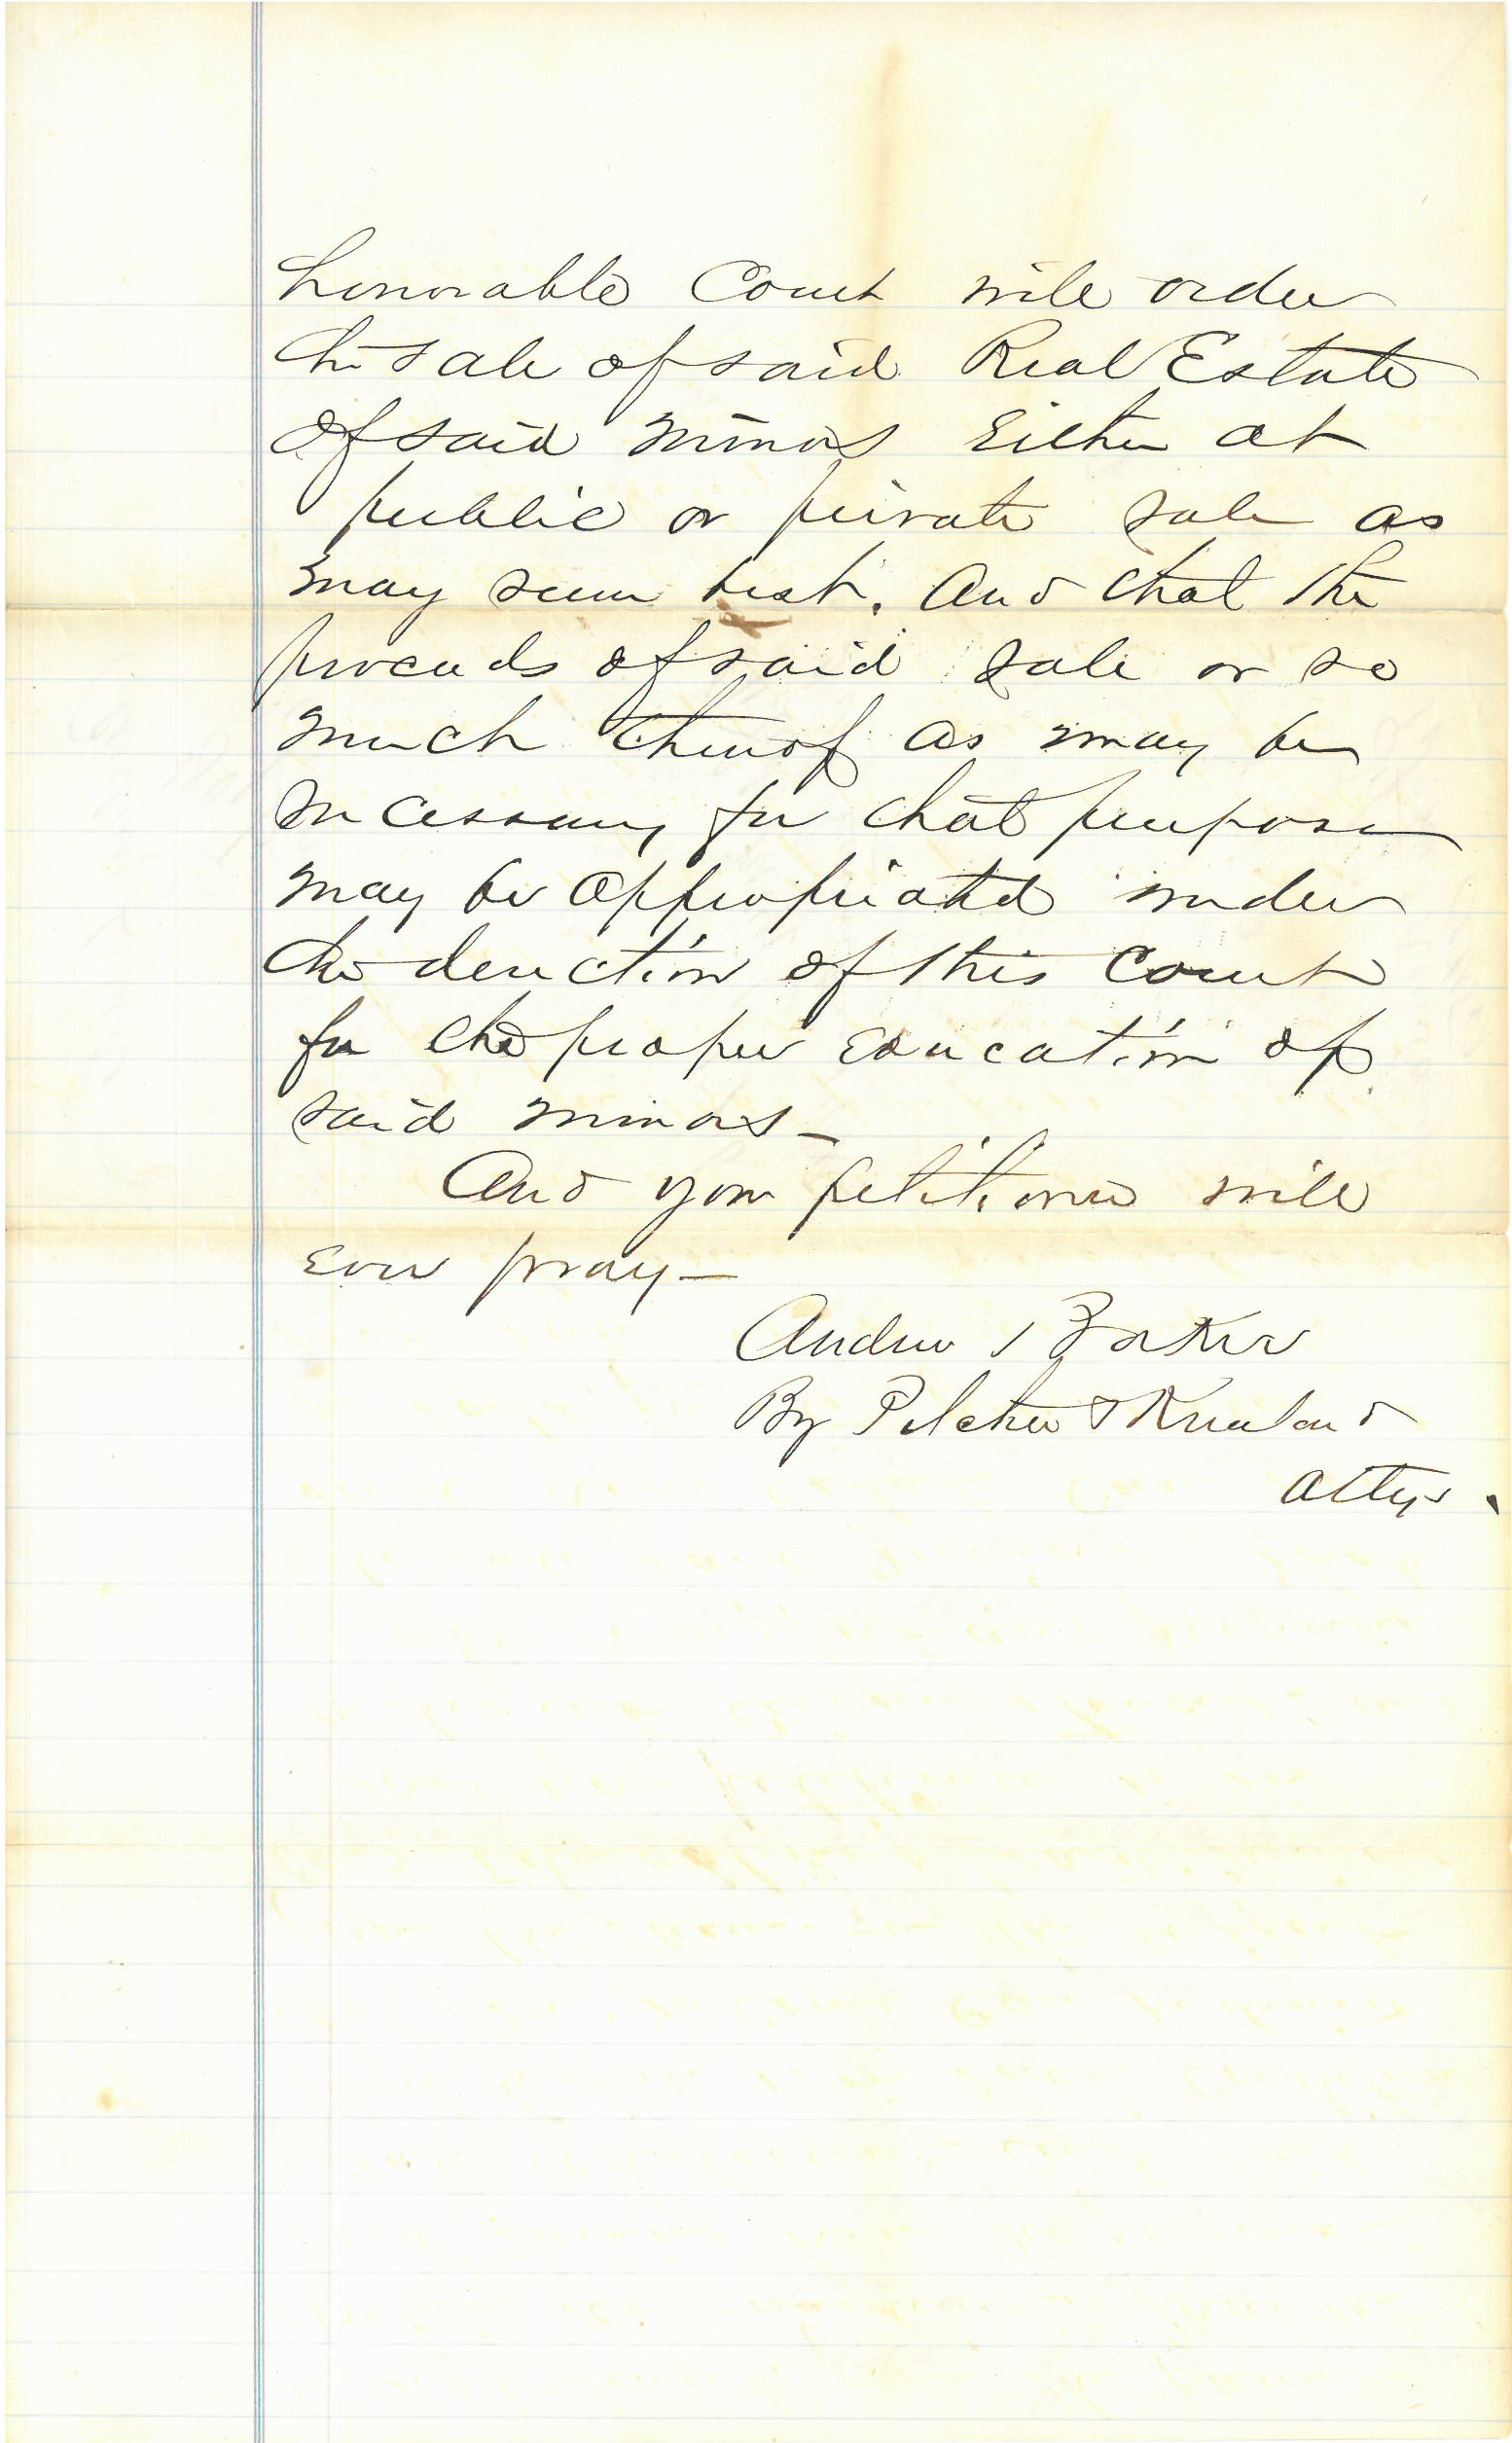 honorable Court will order
the sale of said Real Estate
of said minors Either at
public or private sale as
may seem best. And that the
proceeds of said sale or so
much thereof as may be
necessary for that purpose
may be appropriated under
the direction of this Court
for the proper education of
said minors -
And your petitioner will
Ever pray -
Andrew J Baker
By Pilcher & Kneeland
Attys.